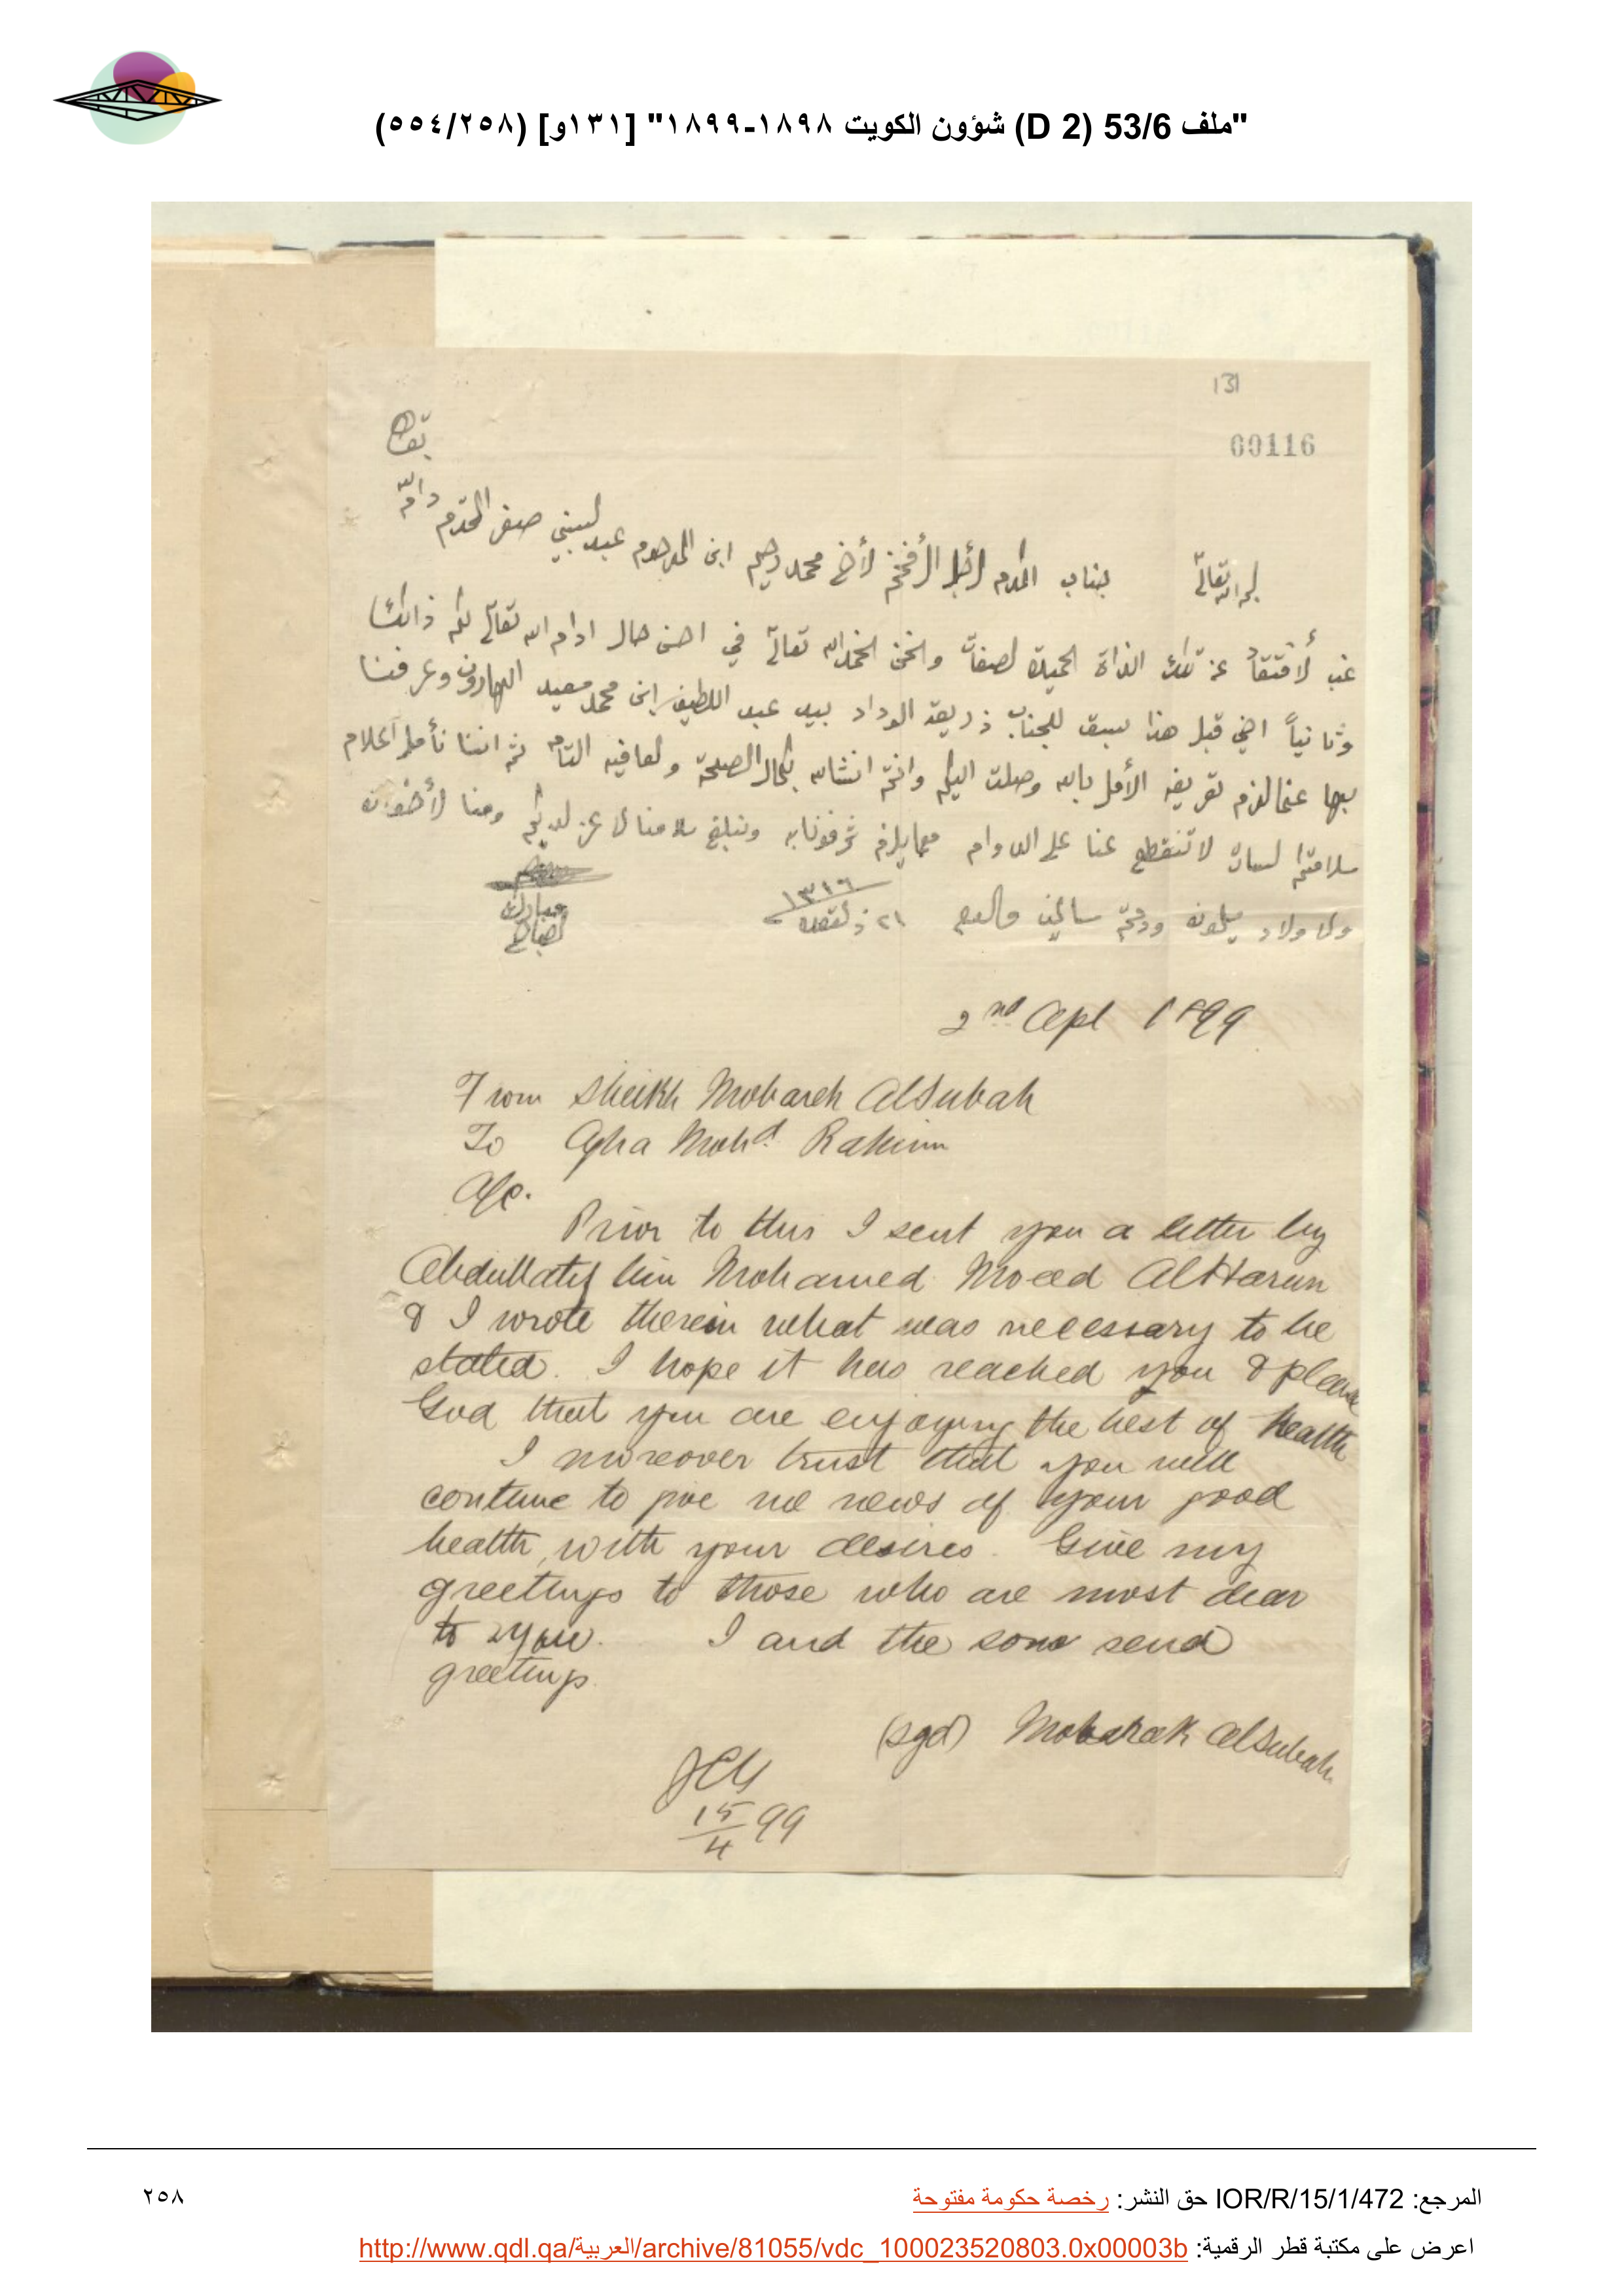 "ملف 53/6 (D 2) شؤون الكويت ١٨٩٨-١٨٩٩" [١٣١و] (٢٥٨/٥٥٤)
131
00116
جناب المكرم الأجل الأفخم الأخ محمد رحيم ابن المرحوم عبد النبي صفر المحترم دام
بقاه
غب الافتقاد عن تلك الذاة الحميدة الصفات ونحن الحمد لله تعالى في احسن حال ادام الله تعالى لكم ذالك
وثانياً اخي قبل هذا سبق للجناب ذريعة الوداد بيد عبد اللطيف ابن محمد الهارون وعرفنا
بها عن لازم تعريفه الأمل بالله وصلت اليكم وانتم انشاالله بكمال الصحة والعافيه التام ثم اننا نأمل اعلام
سلامتكم السارة لا تنقطع عنا على الدوام مع ما يلزم شرفونا به وتبلغ سلامنا لا عز لديكم ومنا الأخوان
والاولاد يسلمون ودمتم سالمين والسلام ٢١ ذالقعدة ١٣١٦
مبارك
الصباح
2nd Apl 1899
From Sheikh Mobarek AlSubah
To Agha Mohd Rahim
A/C.
Prior to this I sent you a letter by
Abdullatif bin Mohamed Moeed AlHarun
& I wrote therein what was necessary to be
stated. I hope it has reached you & please
God that you are enjoying the best of health
I moreover trust that you will
continue to give me news of your good
health, with your desires. Give my
greetings to those who are most dear
to you. I and the sons send
greetings.
(sgd) Mobarak AlSubah.
15/4 99
المرجع: IOR/R/15/1/472 حق النشر: رخصة حكومة مفتوحة
٢٥٨
اعرض على مكتبة قطر الرقمية: http://www.qdl.qa/العربية/archive/81055/vdc_100023520803.0x00003b